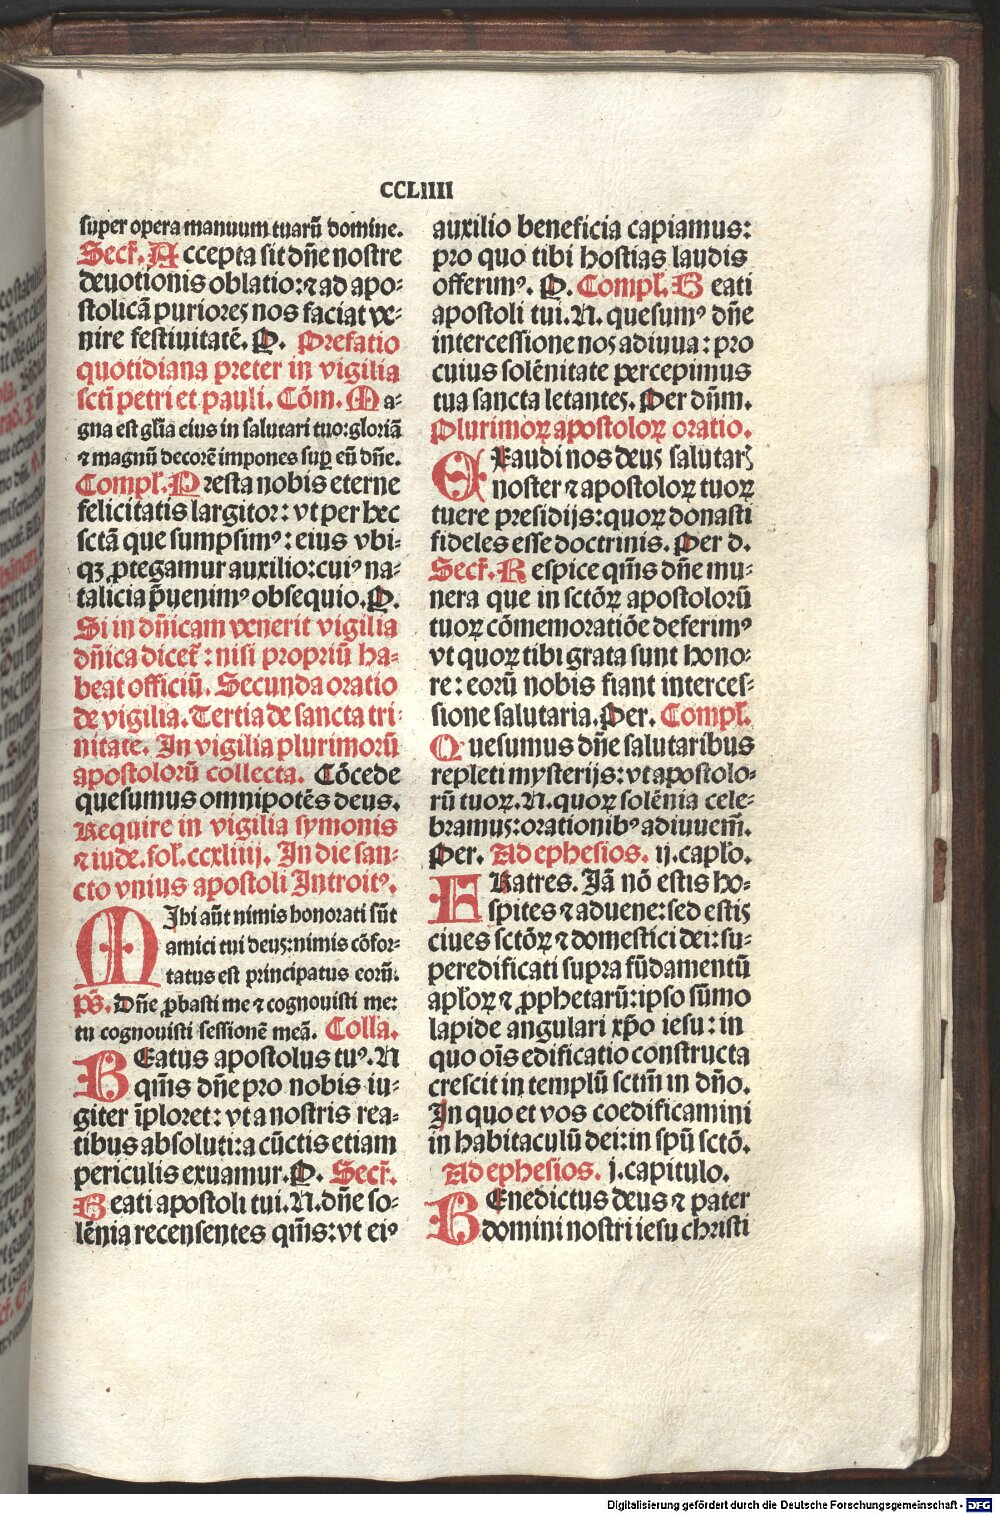 CCLIIII
super opera manuum tuarū domine.
Secr̄. Accepta sit dn̄e nostre
deuotionis oblatio: ⁊ ad apo-
stolicā puriores nos faciat ve-
nire festiuitatē. P. Prefatio
quotidiana preter in vigilia
sctī petri et pauli. Cōm. Ma-
gna est gl̄ia eius in salutari tuo: gloriā
⁊ magnū decorē impones suꝑ eū dn̄e.
Compl̄. Presta nobis eterne
felicitatis largitor: vt per hec
sctā que sumpsimꝰ: eius vbi-
qꝫ ꝓtegamur auxilio: cuiꝰ na-
talicia p̄uenimꝰ obsequio. P.
Si in dn̄icam venerit vigilia
dn̄ica dicet̄: nisi propriū ha-
beat officiū. Secunda oratio
de vigilia. Tertia de sancta tri-
nitate. In vigilia plurimorū
apostolorū collecta. Cōcede
quesumus omnipotēs deus.
Require in vigilia symonis
⁊ iude. fol. ccxliiij. In die san-
cto vnius apostoli Introitꝰ.
MIhi aūt nimis honorati sūt
amici tui deus: nimis cōfor-
tatus est principatus eorū.
p̄s. Dn̄e ꝓbasti me ⁊ cognouisti me:
tu cognouisti sessionē meā. Colla.
BEatus apostolus tuꝰ. N
qm̄s dn̄e pro nobis iu-
giter īploret: vt a nostris rea-
tibus absoluti: a cūctis etiam
periculis exuamur. P. Secr̄.
Beati apostoli tui. N. dn̄e so-
lēnia recensentes qm̄s: vt eiꝰ
auxilio beneficia capiamus:
pro quo tibi hostias laudis
offerimꝰ. P. Compl̄. Beati
apostoli tui. N. quesumꝰ dn̄e
intercessione nos adiuua: pro
cuius solēnitate percepimus
tua sancta letantes. Per dn̄m.
Plurimoꝝ apostoloꝝ oratio.
EXaudi nos deus salutaris
noster ⁊ apostoloꝝ tuoꝝ
tuere presidijs: quoꝝ donasti
fideles esse doctrinis. Per d.
Secr̄. Respice qm̄s dn̄e mu-
nera que in sctōꝝ apostolorū
tuoꝝ cōmemoratiōe deferimꝰ
vt quoꝝ tibi grata sunt hono-
re: eorū nobis fiant interces-
sione salutaria. Per. Compl̄.
Quesumus dn̄e salutaribus
repleti mysterijs: vt apostolo-
rū tuoꝝ. N. quoꝝ solēnia cele-
bramus: orationibꝰ adiuuem̄.
Per. Ad ephesios. ij. caplo.
FRatres. Iā nō estis ho-
spites ⁊ aduene: sed estis
ciues sctōꝝ ⁊ domestici dei: su-
peredificati supra fūdamentū
apl̄oꝝ ⁊ ꝓphetarū: ipso sūmo
lapide angulari xp̄o iesu: in
quo oīs edificatio constructa
crescit in templū sctm̄ in dn̄o.
In quo et vos coedificamini
in habitaculū dei: in spū sctō.
Ad ephesios. j. capitulo.
BEnedictus deus ⁊ pater
domini nostri iesu christi
Digitalisierung gefördert durch die Deutsche Forschungsgemeinschaft - DFG